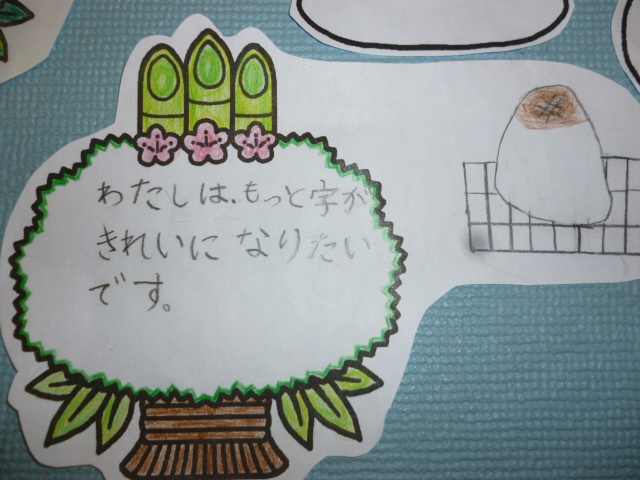 わたしは、もっと字が
きれいに なりたい
です。